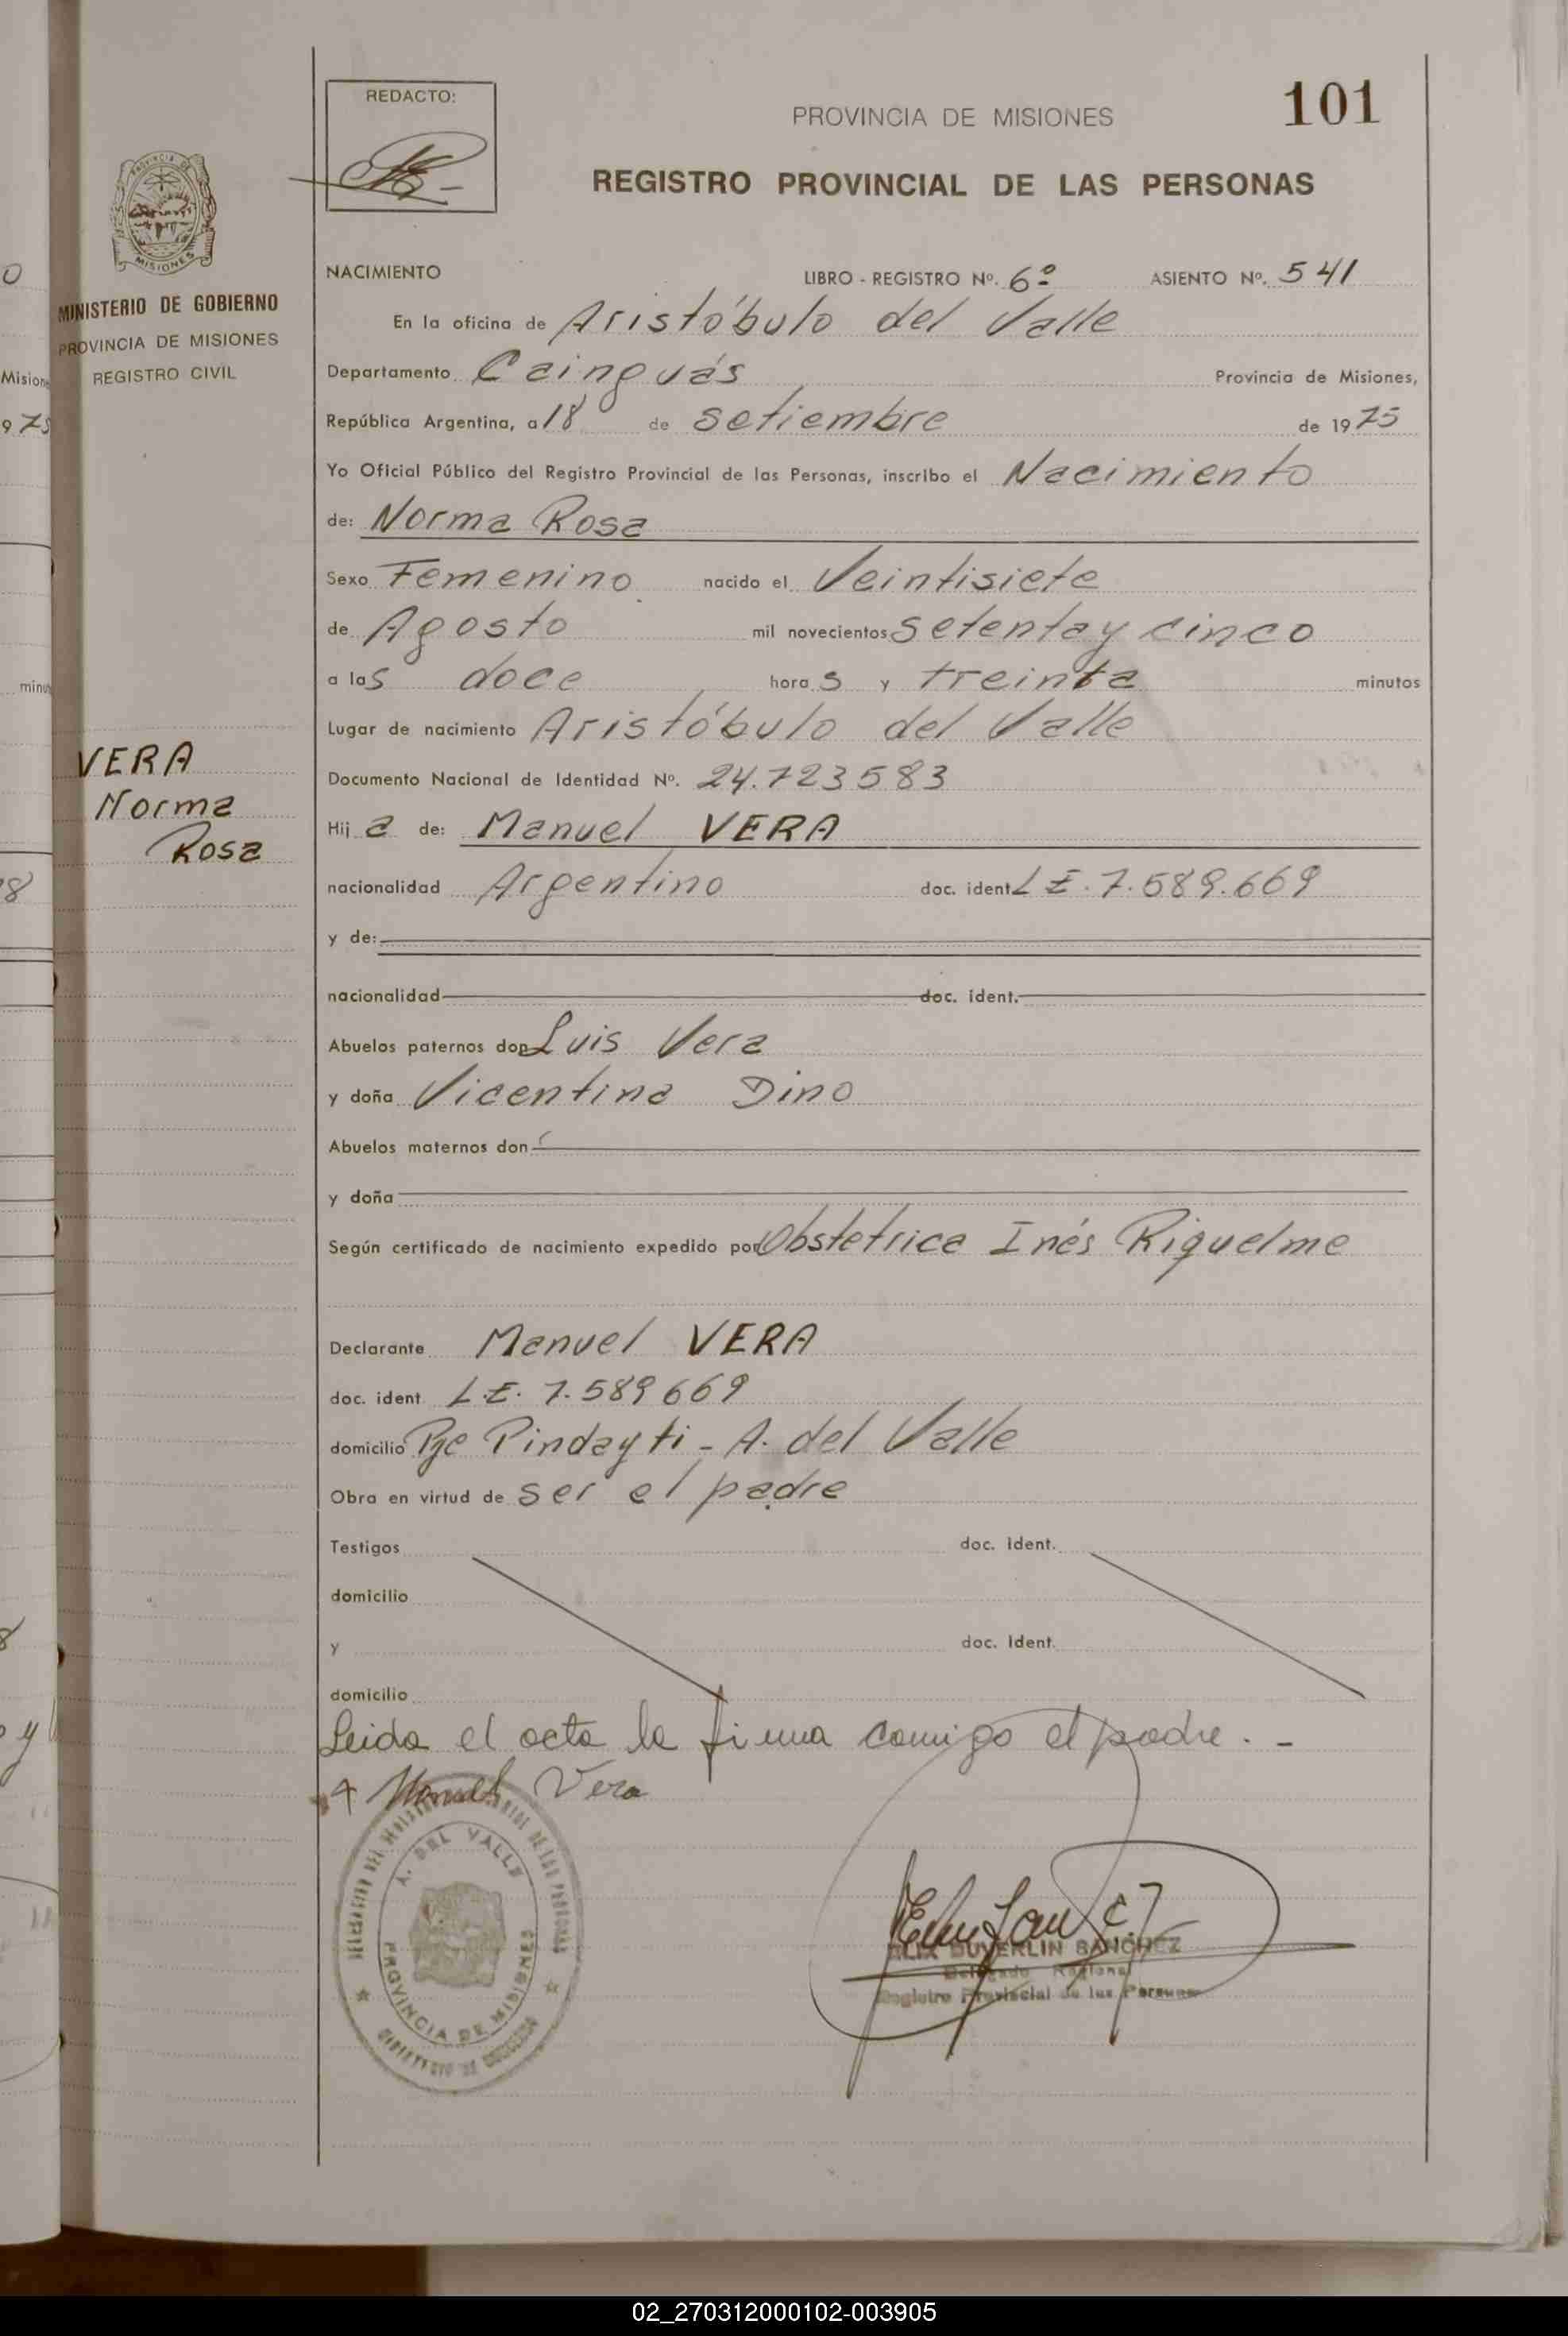 REDACTO:
PROVINCIA DE MISIONES
101
REGISTRO PROVINCIAL DE LAS PERSONAS
PROVINCIA DE
MISIONES
MINISTERIO DE GOBIERNO
PROVINCIA DE MISIONES
REGISTRO CIVIL
NACIMIENTO LIBRO - REGISTRO Nº. 6º ASIENTO Nº. 541
En la oficina de Aristóbulo del Valle
Departamento Cainguás Provincia de Misiones,
República Argentina, a 18 de setiembre de 1975
Yo Oficial Público del Registro Provincial de las Personas, inscribo el Nacimiento
de: Norma Rosa
Sexo Femenino nacido el Veintisiete
de Agosto mil novecientos setenta y cinco
a las doce horas y treinta minutos
Lugar de nacimiento Aristóbulo del Valle
VERA
Norma
Rosa
Documento Nacional de Identidad Nº. 24.723583
Hija de: Manuel VERA
nacionalidad Argentino doc. ident. L E. 7.589.669
y de:
nacionalidad doc. ident.
Abuelos paternos don Luis Vera
y doña Vicentina Dino
Abuelos maternos don
y doña
Según certificado de nacimiento expedido por Obstetrica Inés Riquelme
Declarante Manuel VERA
doc. ident. L.E. 7.589669
domicilio Pje Pindayti - A. del Valle
Obra en virtud de ser el padre
Testigos doc. Ident.
domicilio
y doc. Ident.
domicilio
Leida el acta la firma comigo el padre. -
Manuel Vera
A. DEL VALLE
PROVINCIA DE MISIONES
SANCHEZ
Delegado Regional
Registro Provincial de las Personas
Misione
975
minut
02_270312000102-003905